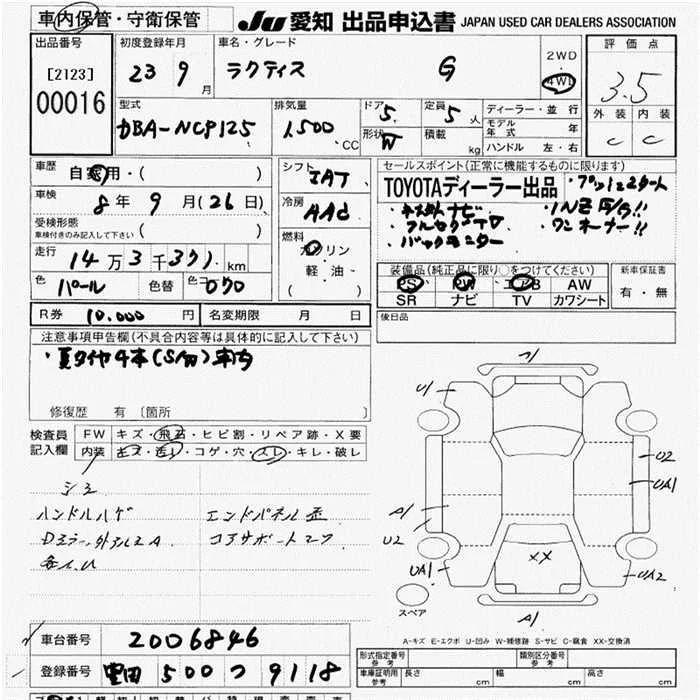 車内保管・守衛保管
JU 愛知 出品申込書 JAPAN USED CAR DEALERS ASSOCIATION
出品番号
[2123]
00016
初度登録年月
23 9 月
車名・グレード
ラクティス G
2WD
4WD
評価点
3.5
外装 内装
C C
型式
DBA-NCP125
排気量
1,500 CC
ドア 5
形状 W
定員 5 人
積載 kg
ディーラー・並行
モデル年式 年
ハンドル 左・右
車歴 自家用・( )
車検 8年 9月(26日)
受検形態
車検付きのみ記入して下さい ( )
走行 14万3千371 km
色 パール 色替 色コ 070
シフト IAT
冷房 AAC
燃料 ガソリン
軽油・
( )
セールスポイント(正常に機能するものに限ります)
TOYOTAディーラー出品 ・プッシュスタート
ナビ
・フルセグTV
・バックモニター
・ワンオーナー!!
装備品(純正品に限り○をつけてください)
PS PW エアB AW
SR ナビ TV カワシート
新車保証書
有・無
後日品
R券 10,000 円 名変期限 月 日
注意事項申告欄(不具合内容等は具体的に記入して下さい)
・夏タイヤ4本(S/W)車内
修復歴 有 〔箇所 〕
検査員記入欄
FW キズ・飛石・ヒビ割・リペア跡・X要
内装 キズ・汚レ・コゲ・穴・スレ・キレ・破レ
シミ
ハンドルハゲ エンドパネル歪
コアサポート
各A.U
A1
U1
U2
UA1
A1
U2
UA1
XX
UA2
A1
スペア
A-キズ E-エクボ U-凹み W-補修跡 S-サビ C-腐食 XX-交換済
車台番号 2006846
登録番号 豊田 500 つ 9118
形式指定番号 参考
類別区分番号 参考
車庫証明用 参考 長さ cm 幅 cm 高さ cm